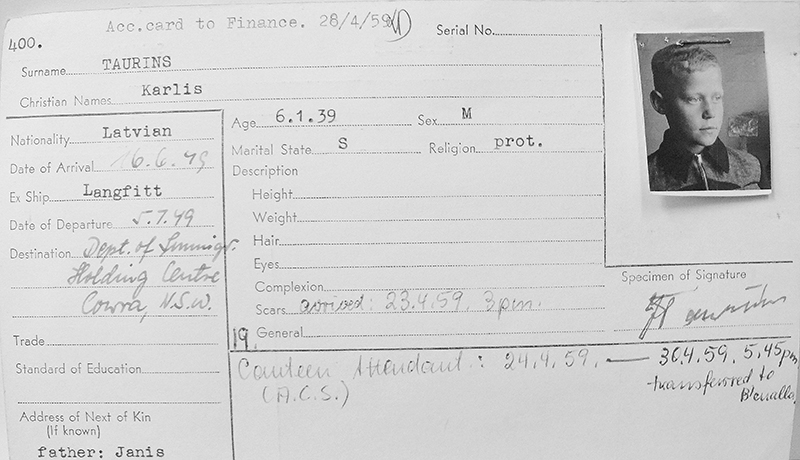 Acc.card to Finance. 28/4/59
400.
Serial No.
Surname TAURINS
Christian Names Karlis
Nationality Latvian
Date of Arrival 16.6.49
Ex Ship Langfitt
Date of Departure 5.7.49
Destination Dept. of Immigr.
Holding Centre
Cowra, N.S.W.
Trade
Standard of Education
Address of Next of Kin
(If known)
father: Janis
Age 6.1.39 Sex M
Marital State S Religion prot.
Description
Height
Weight
Hair
Eyes
Complexion
Scars arrived: 23.4.59. 3pm.
19. General
Specimen of Signature
Canteen Attendant: 24.4.59. — 30.4.59. 5.45pm
(A.C.S.)
transferred to
B'enalla